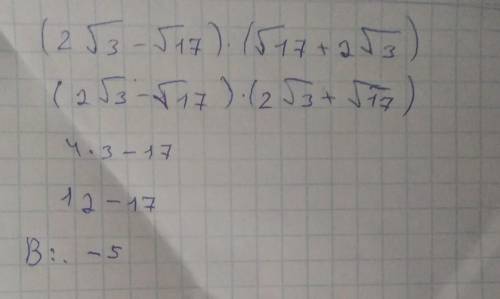 (2√3 - √17)·(√17 + 2√3)
(2√3 - √17)·(2√3 + √17)
4·3 - 17
12 - 17
В:. -5